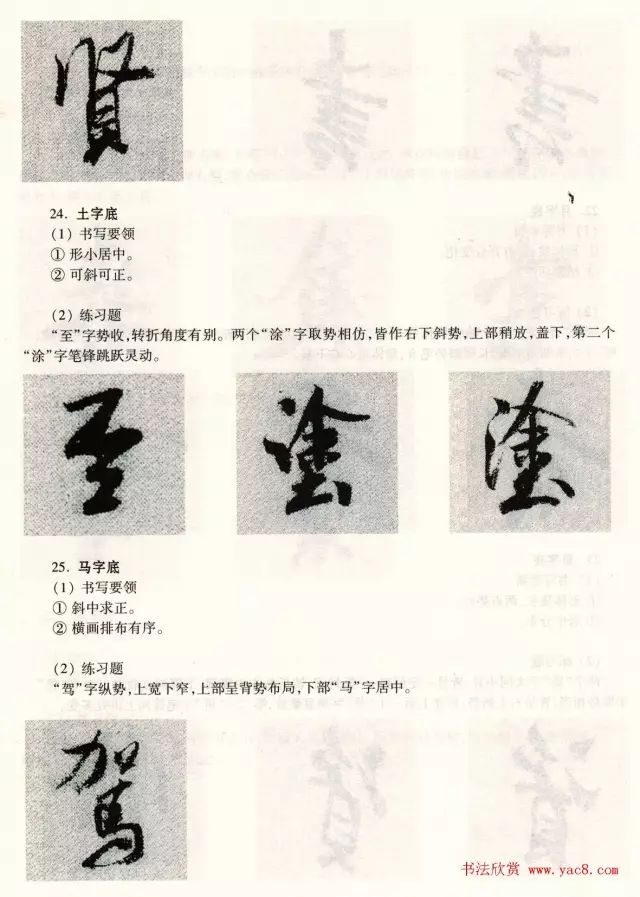 贤
24. 土字底
(1) 书写要领
① 形小居中。
② 可斜可正。
(2) 练习题
“至”字势收,转折角度有别。两个“涂”字取势相仿,皆作右下斜势,上部稍放,盖下,第二个
“涂”字笔锋跳跃灵动。
至 塗 塗
25. 马字底
(1) 书写要领
① 斜中求正。
② 横画排布有序。
(2) 练习题
“驾”字纵势,上宽下窄,上部呈背势布局,下部“马”字居中。
駕
书法欣赏 www.yac8.com